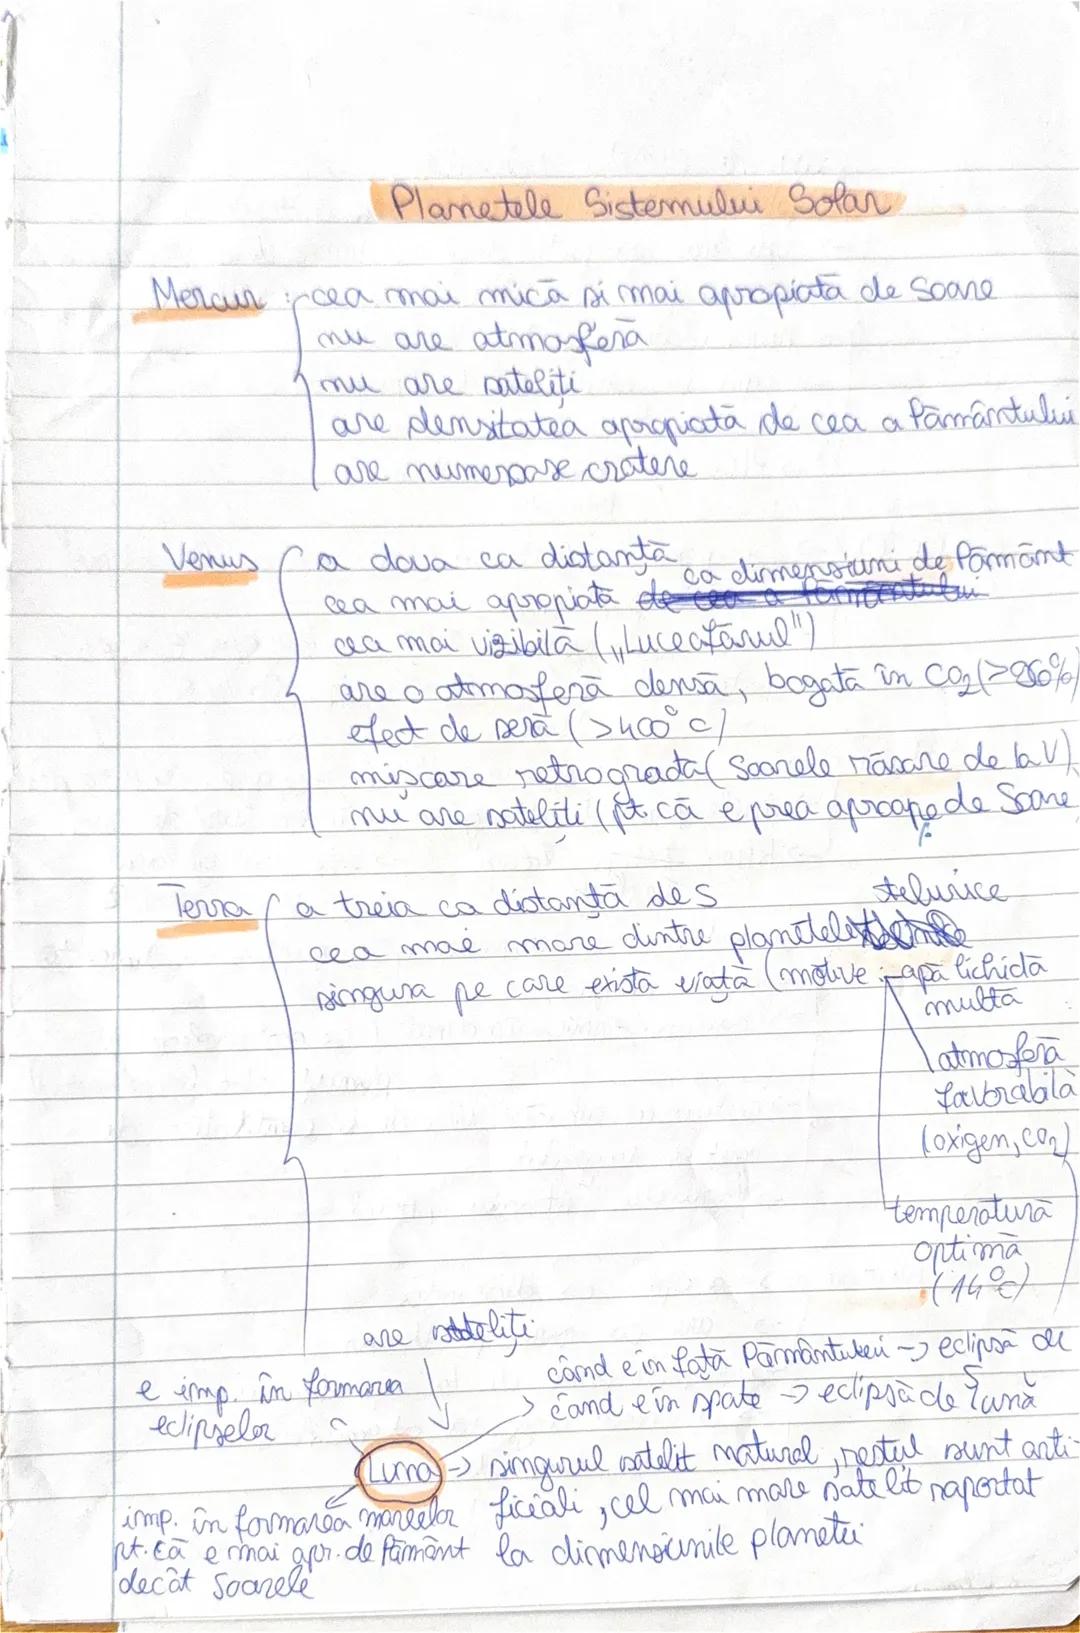 Planetele Sistemului Solar
Mercur : cea mai mică si mai apropiată de Soare
nu are atmosferă
nu are sateliți
are densitatea apropiată de cea a Pământului
are numeroase cratere
Venus a doua ca distanță
cea mai apropiată ca dimensiuni de Pământ
cea mai vizibilă („Luceafărul")
are o atmosferă densă, bogată în CO2 (>96%)
efect de seră (>400°C)
mișcare retrogradă (Soarele răsare de la V)
nu are sateliți (pt. că e prea aproape de Soare
Terra a treia ca distanță de S
cea mai mare dintre planetele telurice
singura pe care există viață (motive : apă lichidă
multă
atmosferă
favorabilă
(oxigen, CO2)
temperatură
optimă
(14°C)
are sateliți
e imp. în formarea
eclipselor
când e în fața Pământului -> eclipsă de S
când e în spate -> eclipsă de Lună
Luna -> singurul satelit natural, restul sunt arti-
ficiali, cel mai mare satelit raportat
la dimensiunile planetei
imp. în formarea mareelor
pt. că e mai apr. de Pământ
decât Soarele